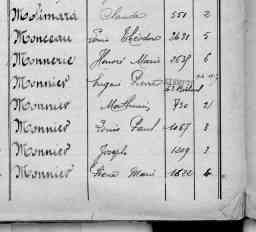 Molimard Claude 551 2
Monceau Théodore 2631 5
Monnerie Honoré Marie 6
Monnier Eugène Pierre
Monnier Mathurin 730 21
Monnier Louis Paul 1067 8
Monnier Joseph 1209 3
Monnier Pierre Marie 1522 4